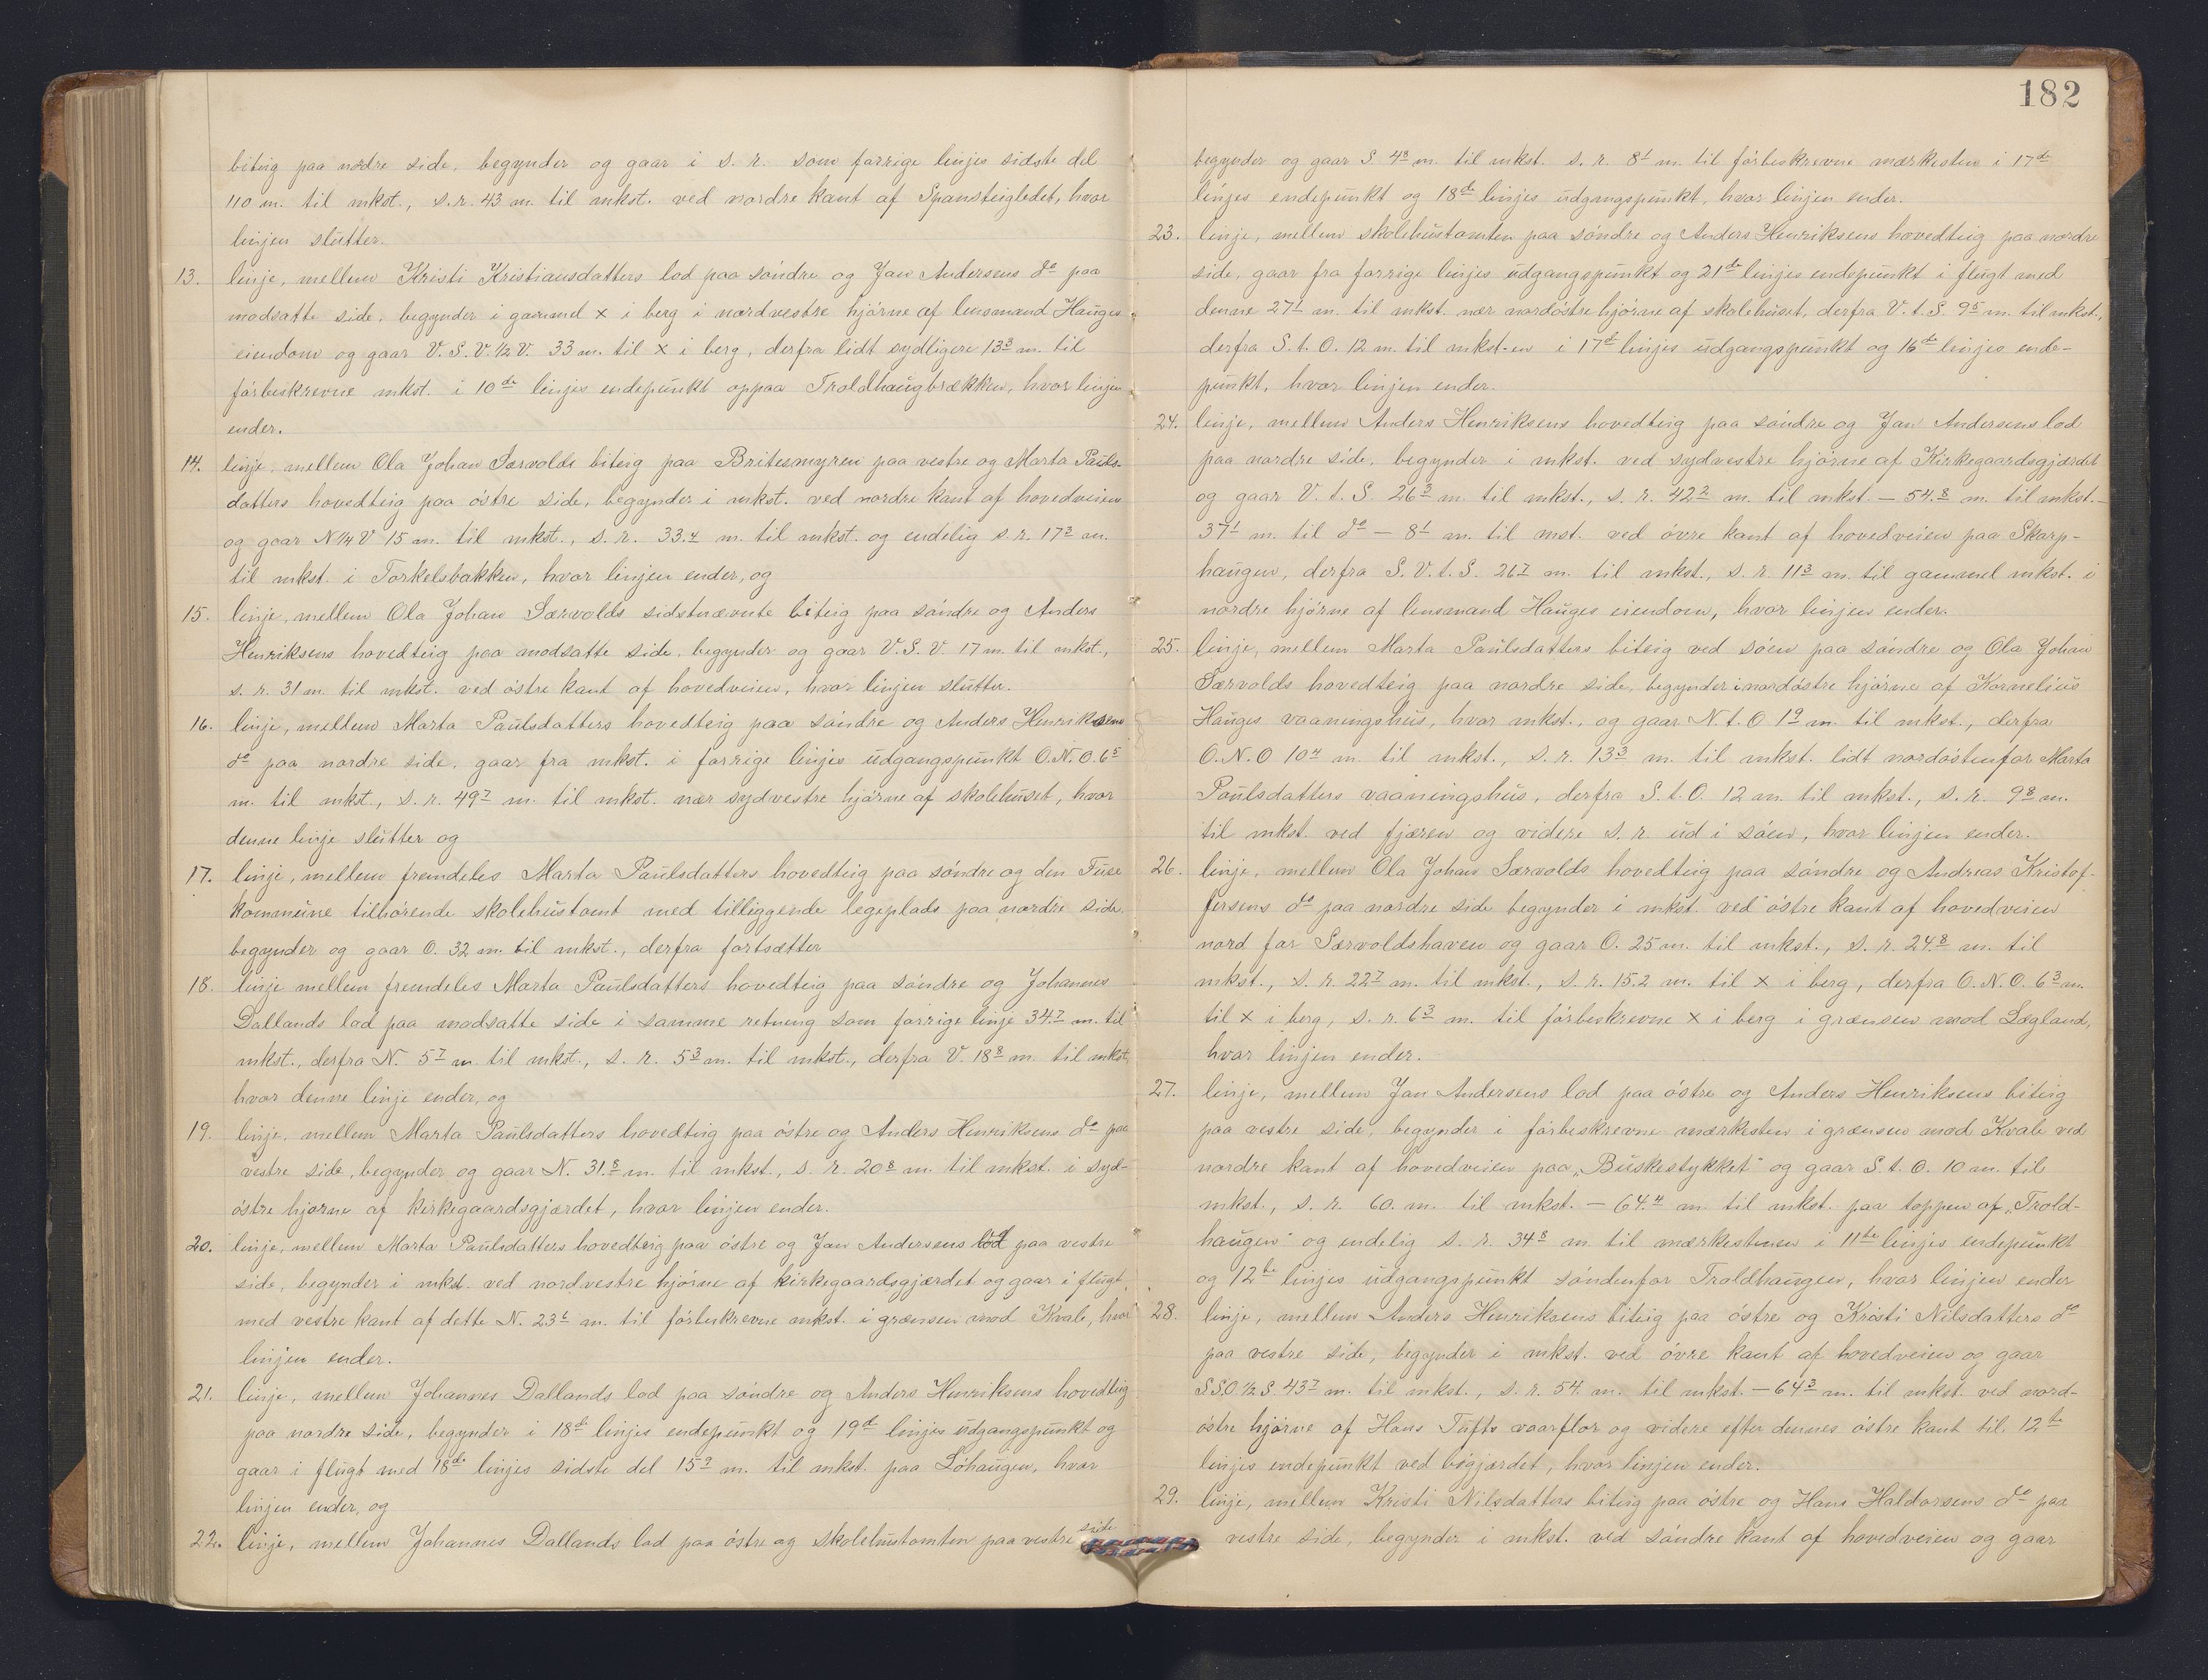 biteig paa nordre side, begynder og gaar i s. r. som forrige linjes sidste del
110 m. til mkst., s. r. 43 m. til mkst. ved nordre kant af Spansteigledet, hvor
linjen slutter.
13. linje, mellem Kristi Kristiansdatters lod paa søndre og Jan Andersens do paa
modsatte side, begynder i gammel x i berg i nordvestre hjørne af lensmand Hauges
eiendom og gaar V.S.V.½V. 33 m. til x i berg, derfra lidt sydligere 13 3 m. til
førbeskrevne mkst. i 10de linjes endepunkt oppaa Troldhaugbrækken, hvor linjen
ender.
14. linje, mellem Ola Johan Særvolds biteig paa Britesmyren paa vestre og Marta Pauls-
datters hovedteig paa østre side, begynder i mkst. ved nordre kant af hovedveien
og gaar N¼V 15 m. til mkst., s. r. 33.4 m. til mkst. og endelig s. r. 17 3 m.
til mkst. i Torkelsbakken, hvor linjen ender, og
15. linje, mellem Ola Johan Særvolds sidstnævnte biteig paa søndre og Anders
Henriksens hovedteig paa modsatte side, begynder og gaar V.S.V. 17 m. til mkst.,
s. r. 31 m. til mkst. ved østre kant af hovedveien, hvor linjen slutter.
16. linje, mellem Marta Paulsdatters hovedteig paa søndre og Anders Henriksens
do paa nordre side, gaar fra mkst. i forrige linjes udgangspunkt O.N.O. 6 5
m. til mkst., s. r. 49 7 m. til mkst. nær sydvestre hjørne af skolehuset, hvor
denne linje slutter og
17. linje, mellem fremdeles Marta Paulsdatters hovedteig paa søndre og den Fuse
kommune tilhørende skolehustomt med tilliggende legeplads paa nordre side,
begynder og gaar O. 32 m. til mkst., derfra fortsætter
18. linje mellem fremdeles Marta Paulsdatters hovedteig paa søndre og Johannes
Dallands lod paa modsatte side i samme retning som forrige linje 34.7 m. til
mkst., derfra N. 5 7 m. til mkst., s. r. 5 3 m. til mkst., derfra V. 18 8 m. til mkst,
hvor denne linje ender, og
19. linje, mellem Marta Paulsdatters hovedteig paa østre og Anders Henriksens do paa
vestre side, begynder og gaar N. 31.8 m. til mkst., s. r. 20 8 m. til mkst. i syd-
østre hjørne af kirkegaardsgjærdet, hvor linjen ender.
20. linje, mellem Marta Paulsdatters hovedteig paa østre og Jan Andersens lod paa vestre
side, begynder i mkst. ved nordvestre hjørne af kirkegaardsgjærdet og gaar i flugt
med vestre kant af dette N. 23 6 m. til førbeskrevne mkst. i grænsen mod Kvale, hvor
linjen ender.
21. linje, mellem Johannes Dallands lod paa søndre og Anders Henriksens hovedteig
paa nordre side, begynder i 18de linjes endepunkt og 19de linjes udgangspunkt og
gaar i flugt med 18de linjes sidste del 15 9 m. til mkst. paa Løhaugen, hvor
linjen ender, og
22. linje, mellem Johannes Dallands lod paa østre og skolehustomten paa vestre side
182
begynder og gaar S 4 8 m. til mkst. s. r. 8 1 m. til førbeskrevne mærkesten i 17de
linjes endepunkt og 18de linjes udgangspunkt, hvor linjen ender.
23. linje, mellem skolehustomten paa søndre og Anders Henriksens hovedteig paa nordre
side, gaar fra forrige linjes udgangspunkt og 21de linjes endepunkt i flugt med
denne 27 1 m. til mkst. nær nordøstre hjørne af skolehuset, derfra V. t. S. 9 5 m. til mkst.,
derfra S. t. O. 12 m. til mkst-en i 17de linjes udgangspunkt og 16de linjes ende-
punkt, hvor linjen ender.
24. linje, mellem Anders Henriksens hovedteig paa søndre og Jan Andersens lod
paa nordre side, begynder i mkst. ved sydvestre hjørne af Kirkegaardsgjærdet
og gaar V. t. S. 26 3 m. til mkst., s. r. 42 2 m. til mkst. — 54.8 m. til mkst. —
37 1 m. til do — 8 1 m. til mst. ved øvre kant af hovedveien paa Skarp-
haugen, derfra S. V. t. S. 26 7 m. til mkst., s. r. 11 3 m. til gammel mkst. i
nordre hjørne af lensmand Hauges eiendom, hvor linjen ender.
25. linje, mellem Marta Paulsdatters biteig ved søen paa søndre og Ola Johan
Særvolds hovedteig paa nordre side, begynder i nordøstre hjørne af Kornelius
Hauges vaaningshus, hvor mkst., og gaar N. t. O 1 9 m. til mkst., derfra
O.N.O 10 4 m. til mkst., s. r. 13 3 m. til mkst. lidt nordøstenfor Marta
Paulsdatters vaaningshus, derfra S. t. O. 12 m. til mkst., s. r. 9 8 m.
til mkst. ved fjæren og videre s. r. ud i søen, hvor linjen ender.
26. linje, mellem Ola Johan Særvolds hovedteig paa søndre og Andreas Kristof-
fersens do paa nordre side begynder i mkst. ved østre kant af hovedveien
nord for Særvoldshaven og gaar O. 25 m. til mkst., s. r. 24.8 m. til
mkst., s. r. 22 7 m. til mkst., s. r. 15.2 m. til x i berg, derfra O. N. O. 6 3 m.
til x i berg, s. r. 6 3 m. til førbeskrevne x i berg i grænsen mod Lægland,
hvor linjen ender.
27. linje, mellem Jan Andersens lod paa østre og Anders Henriksens biteig
paa vestre side, begynder i førbeskrevne mærkesten i grænsen mod Kvale ved
nordre kant af hovedveien paa „Buskestykket" og gaar S. t. O. 10 m. til
mkst., s. r. 60. m. til mkst. — 64.4 m. til mkst. paa toppen af „Trold-
haugen" og endelig s. r. 34 8 m. til mærkestenen i 11te linjes endepunkt
og 12te linjes udgangspunkt søndenfor Troldhaugen, hvor linjen ender
28. linje, mellem Anders Henriksens biteig paa østre og Kristi Nilsdatters do
paa vestre side, begynder i mkst. ved øvre kant af hovedveien og gaar
S.S.O.½S. 43 7 m. til mkst., s. r. 54. m. til mkst. — 64 3 m. til mkst. ved nord-
østre hjørne af Hans Tufts vaarflor og videre efter dennes østre kant til 12te
linjes endepunkt ved bøgjærdet, hvor linjen ender.
29. linje, mellem Kristi Nilsdatters biteig paa østre og Hans Haldorsens do paa
vestre side, begynder i mkst. ved søndre kant af hovedveien og gaar